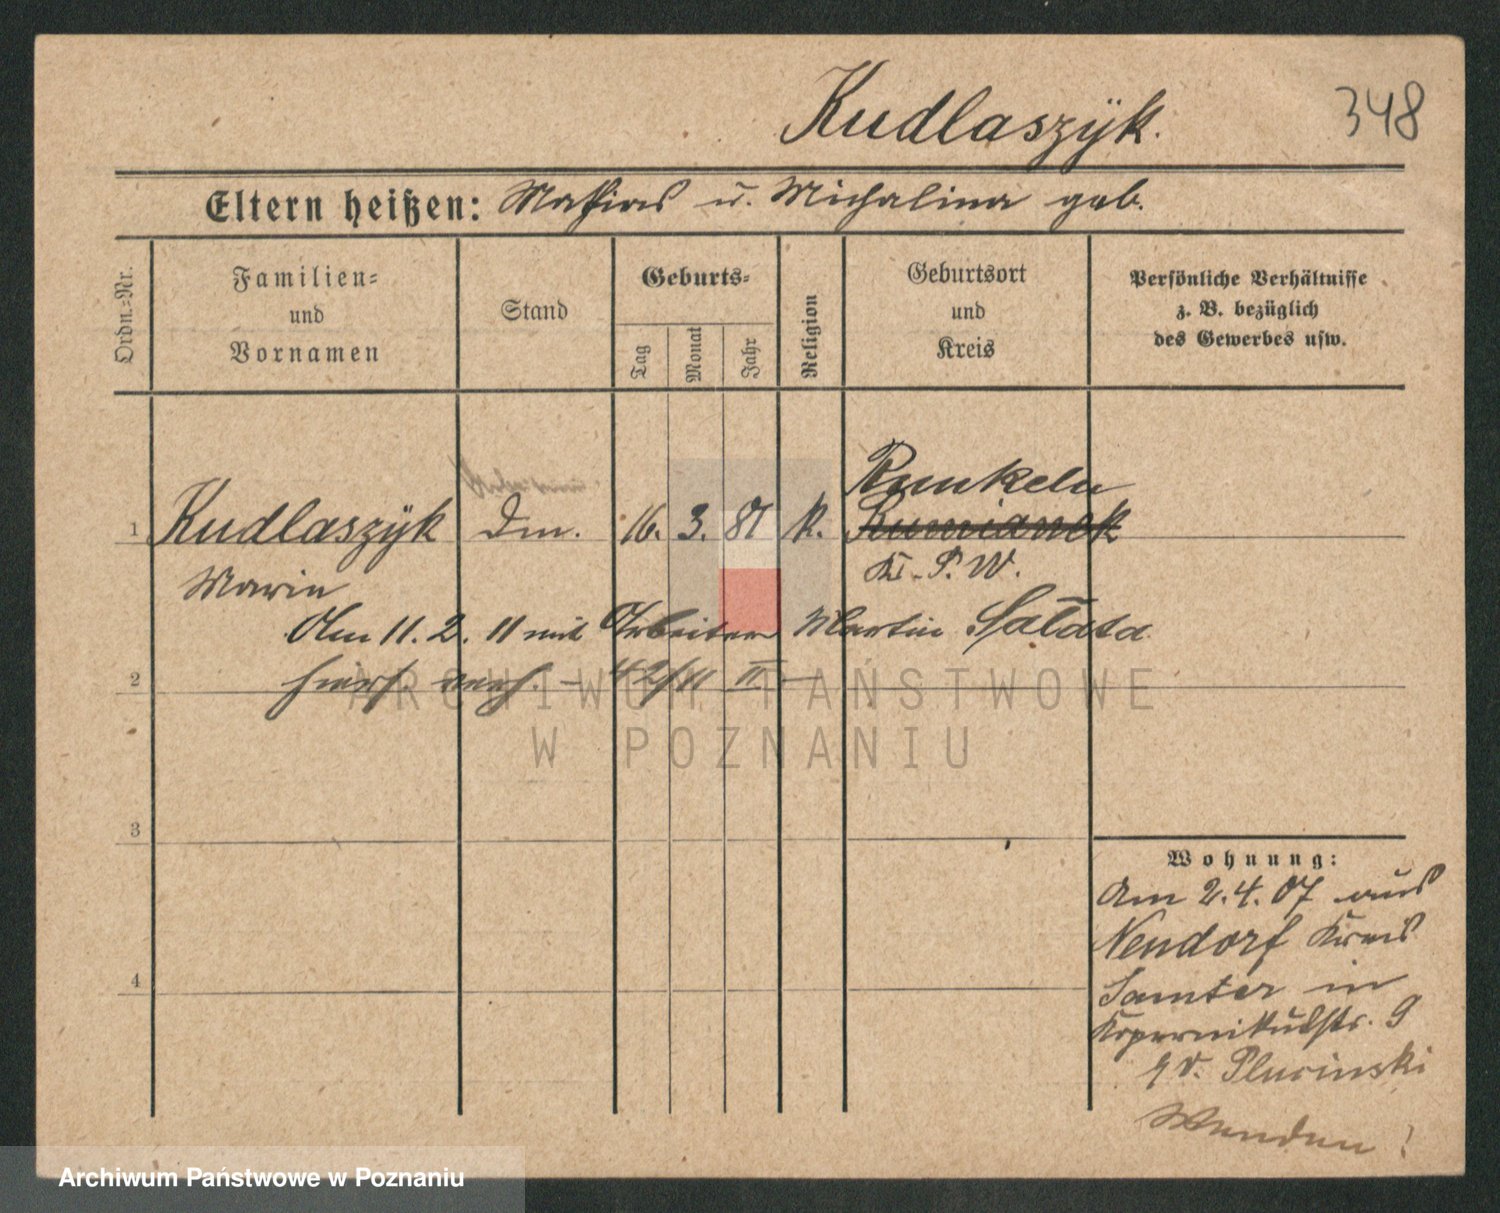 Kudlaszÿk.
348
Eltern heißen: Mathias u. Michalina geb.
Ordn.-Nr.
Familien-
und
Vornamen
Stand
Geburts-
Tag
Monat
Jahr
Religion
Geburtsort
und
Kreis
Persönliche Verhältnisse
z. B. bezüglich
des Gewerbes usw.
Runkeln
1 Kudlaszÿk Dm. 16. 3. 87 K. Rumianek
Maria Kr. P. W.
Am 11. 2. 11 mit Arbeiter Martin Sałata
2 hier verh. – 42/11 II –
3
4
Wohnung:
Am 2.4.07 aus
Neudorf Kreis
Samter in
Kopernikusstr. 9
Plucinski
Wenden!
ARCHIWUM PAŃSTWOWE
W POZNANIU
Archiwum Państwowe w Poznaniu